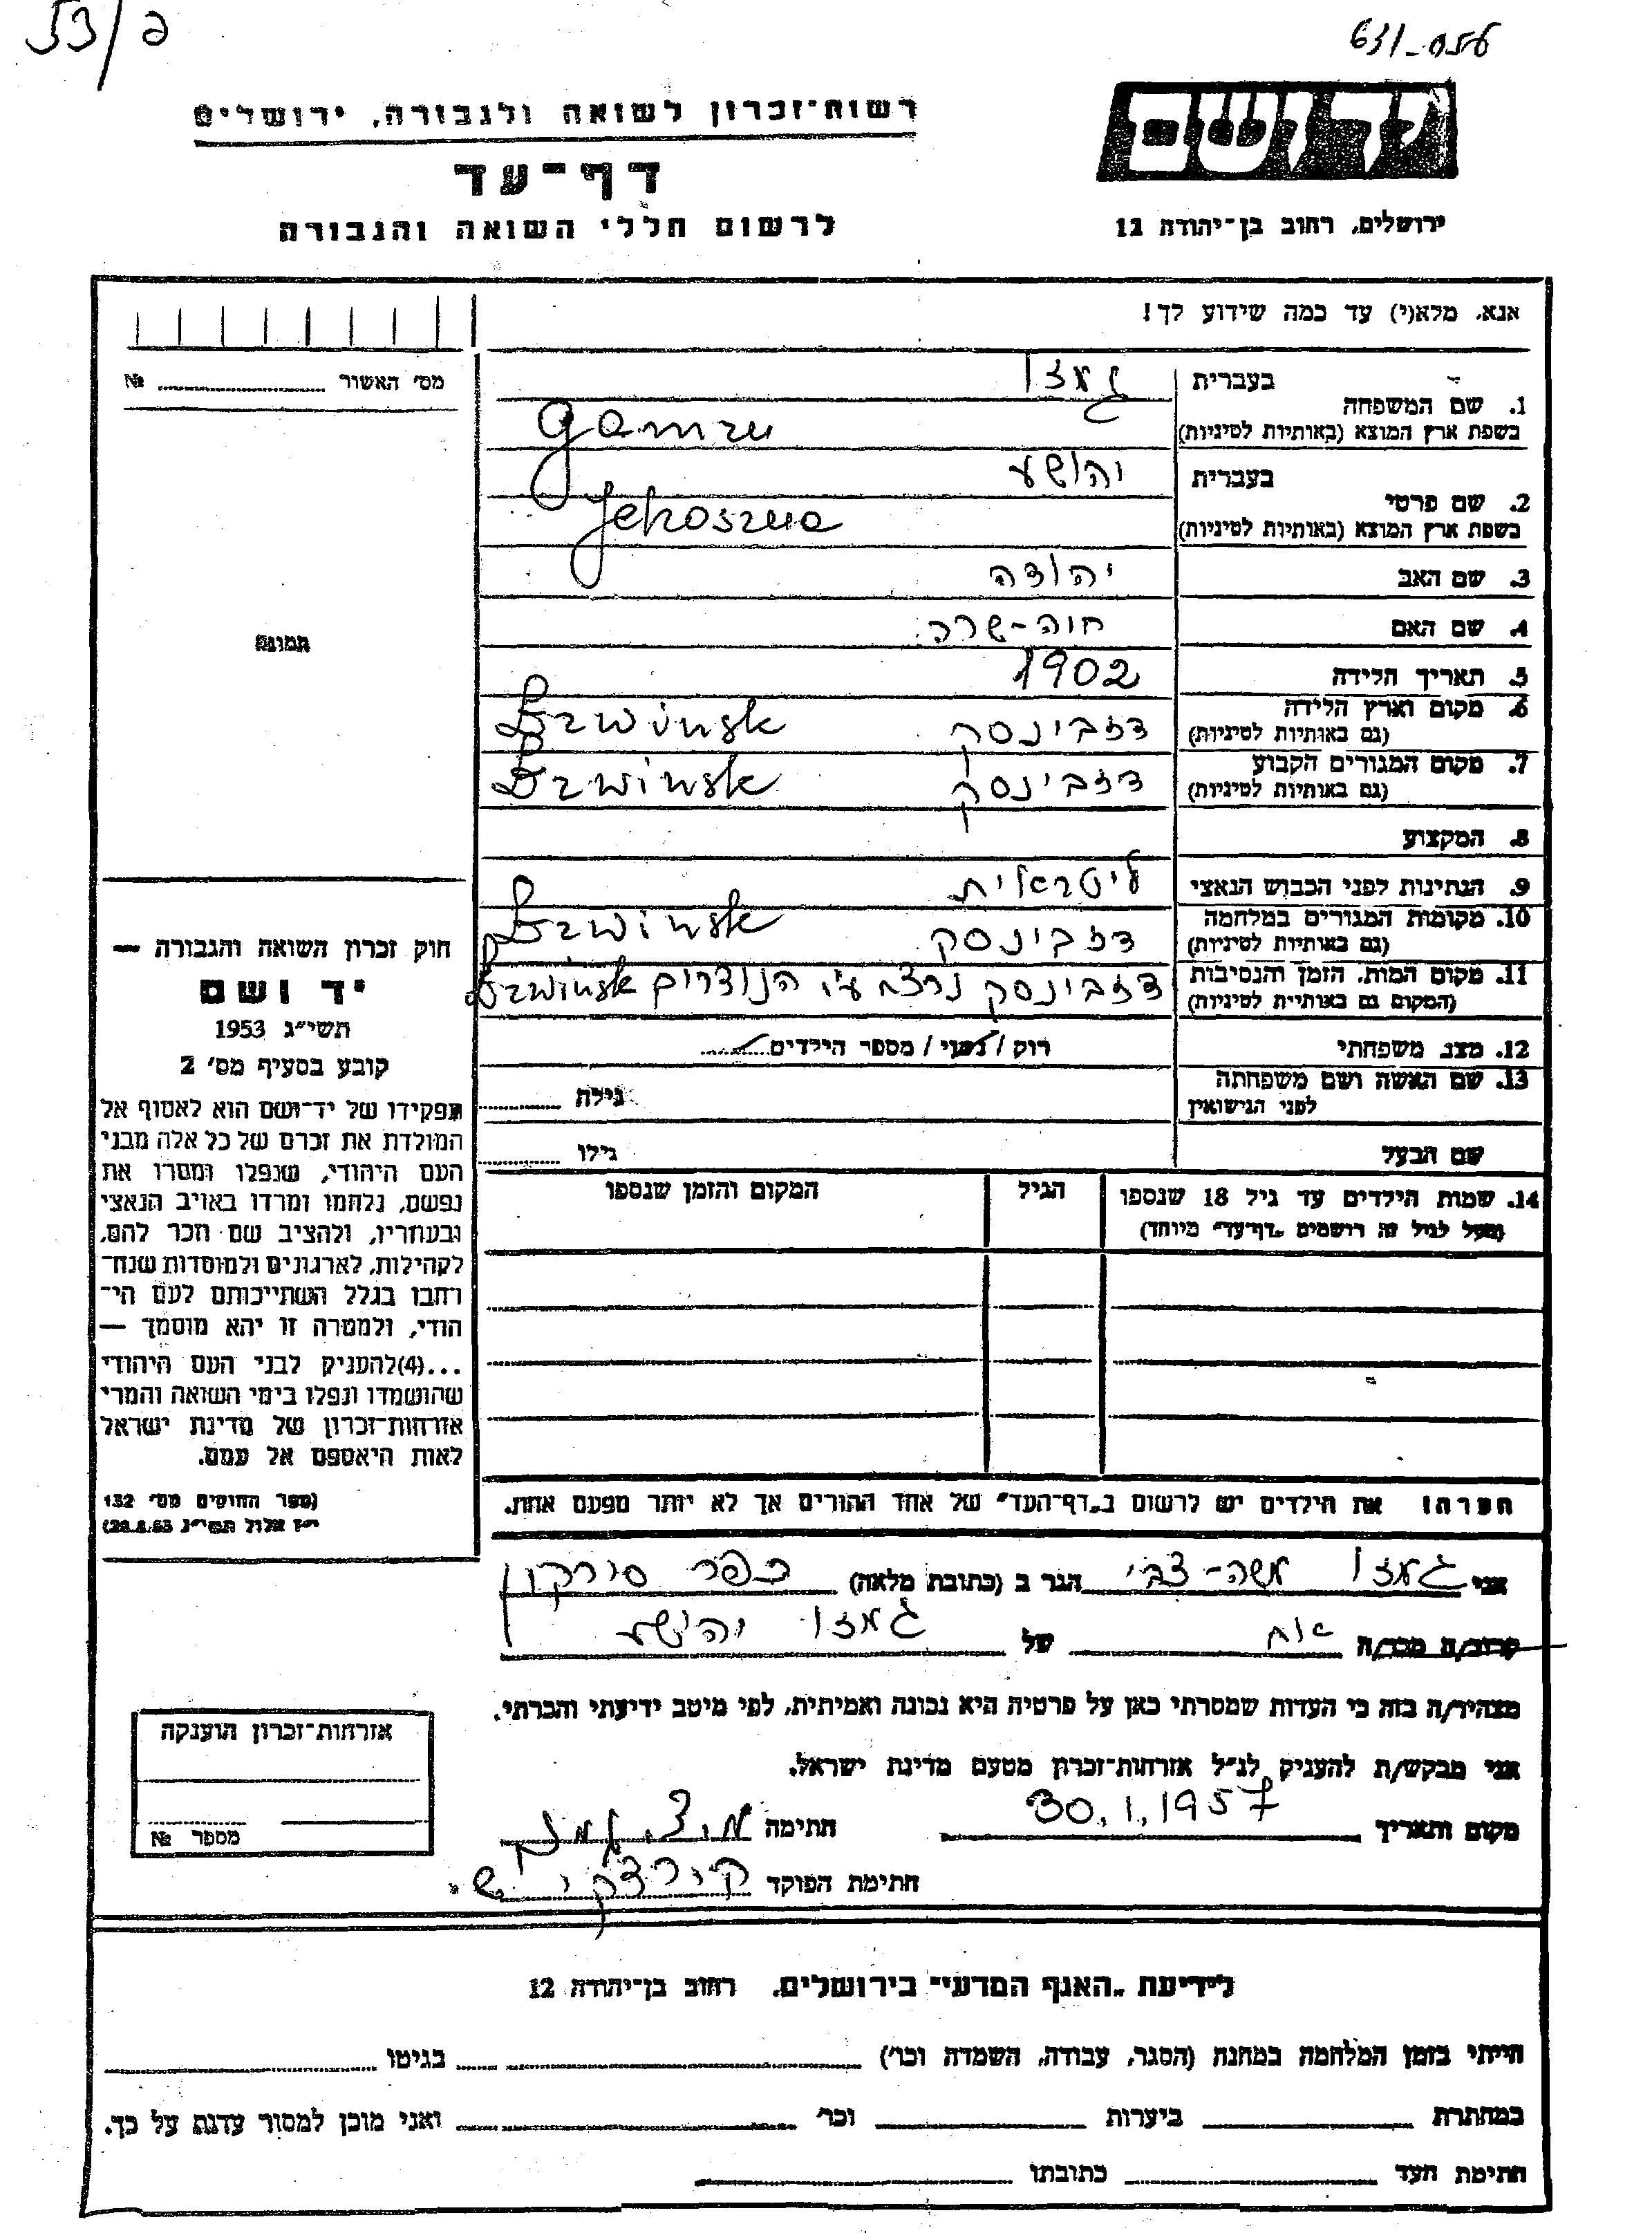 53/ב
631-056
יד ושם
רשות־זכרון לשואה ולגבורה, ירושלים
דף־עד
לרשום חללי השואה והגבורה
ירושלים, רחוב בן־יהודה 12
אנא, מלא(י) עד כמה שידוע לך!
מס' האשור ........ №
תמונה
1. שם המשפחה
בעברית גמזו
בשפת ארץ המוצא (באותיות לטיניות) Gamzu
2. שם פרטי
בעברית יהושע
בשפת ארץ המוצא (באותיות לטיניות) Jehoszua
3. שם האב יהודה
4. שם האם חוה-שרה
5. תאריך הלידה 1902
6. מקום וארץ הלידה
(גם באותיות לטיניות) דזבינסק Dzwinsk
7. מקום המגורים הקבוע
(גם באותיות לטיניות) דזבינסק Dzwinsk
8. המקצוע
9. הנתינות לפני הכבוש הנאצי ליטאית
10. מקומות המגורים במלחמה
(גם באותיות לטיניות) דזבינסק Dzwinsk
11. מקום המות, הזמן והנסיבות
(המקום גם באותיות לטיניות) דזבינסק נרצח ע"י הנוצרים Dzwinsk
12. מצב משפחתי רוק / נשוי / מספר הילדים........
13. שם האשה ושם משפחתה
לפני הנישואין גילה ........
שם הבעל גילו ........
14. שמות הילדים עד גיל 18 שנספו
(מעל לגיל זה רושמים „דף־עד" מיוחד)
הגיל
המקום והזמן שנספו
הערה: את הילדים יש לרשום ב„דף־העד" של אחד ההורים אך לא יותר מפעם אחת.
חוק זכרון השואה והגבורה —
יד ושם
תשי"ג 1953
קובע בסעיף מס' 2
תפקידו של יד־ושם הוא לאסוף אל
המולדת את זכרם של כל אלה מבני
העם היהודי, שנפלו ומסרו את
נפשם, נלחמו ומרדו באויב הנאצי
ובעוזריו, ולהציב שם וזכר להם,
לקהילות, לארגונים ולמוסדות שנח־
רבו בגלל השתייכותם לעם הי־
הודי, ולמטרה זו יהא מוסמך —
...(4)להעניק לבני העם היהודי
שהושמדו ונפלו בימי השואה והמרי
אזרחות־זכרון של מדינת ישראל
לאות היאספם אל עמם.
(ספר החוקים מס' 132
י"ז אלול תשי"ג 28.8.53)
אני גמזו משה-צבי הגר ב (כתובת מלאה) כפר סירקין
קרוב/ה מכר/ה אח של גמזו יהושע
מצהיר/ה בזה כי העדות שמסרתי כאן על פרטיה היא נכונה ואמיתית, לפי מיטב ידיעתי והכרתי.
אני מבקש/ת להעניק לנ"ל אזרחות־זכרון מטעם מדינת ישראל.
מקום ותאריך 30.1.1957 חתימה מ.צ. גמזו
חתימת הפוקד
אזרחות־זכרון הוענקה
מספר №
לידיעת „האגף המדעי" בירושלים, רחוב בן־יהודה 12
הייתי בזמן המלחמה במחנה (הסגר, עבודה, השמדה וכו') ........ בגיטו ........
במחתרת ........ ביערות ........ וכו' ........ ואני מוכן למסור עדות על כך.
חתימת העד ........ כתובתו ........